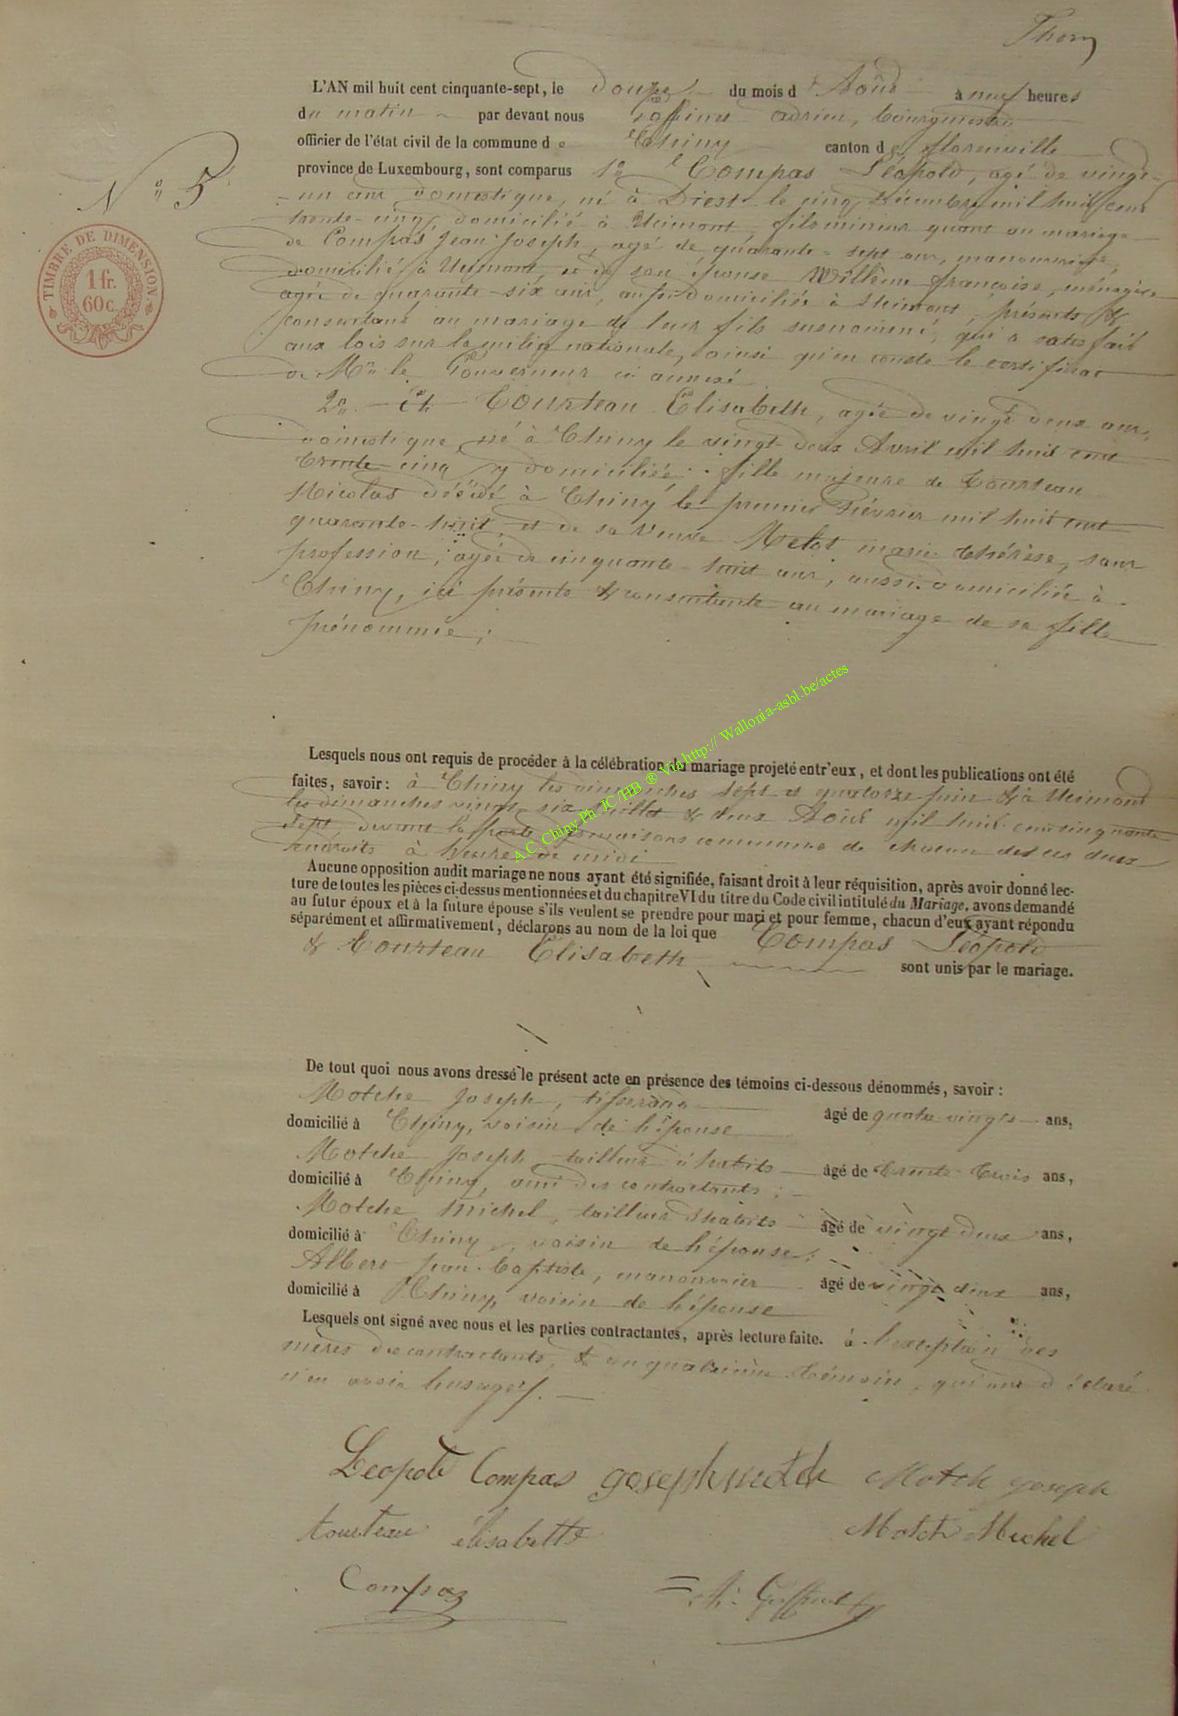 Thom
L'AN mil huit cent cinquante-sept, le douze du mois d'Août à neuf heures
du matin par devant nous adrien, bourgmestre
officier de l'état civil de la commune de Chiny canton de florenville
province de Luxembourg, sont comparus 1° Compas Léopold, agé de vingt-
N° 5
un ans domestique, né à Diest le cinq Décembre mil huit cent
trente-cinq, domicilié à Ucimont, fils mineur quant au mariage
de Compas Jean Joseph, agé de quarante-sept ans, manouvrier,
domicilié à Ucimont, et de son épouse Willème françoise, ménagère
agée de quarante-six ans, aussi domiciliée à Ucimont, présents &
consentant au mariage de leur fils susnommé, qui a satisfait
aux lois sur la milice nationale, ainsi qu'en conste le certificat
de Mr le Gouverneur ci annexé
2° Et Tourteau Elisabeth, agée de vingt deux ans,
domestique, né à Chiny le vingt-deux Avril mil huit cent
trente cinq, y domiciliée, fille majeure de Tourteau
Nicolas décédé à Chiny le premier Février mil huit cent
quarante-huit, et de sa veuve Melot marie thérèse, sans
profession, agée de cinquante-huit ans, aussi domiciliée à
Chiny, ici présente & consentante au mariage de sa fille
prénommée;
TIMBRE DE DIMENSION
1 fr.
60 c.
Lesquels nous ont requis de procéder à la célébration du mariage projeté entr'eux, et dont les publications ont été
faites, savoir: à Chiny les dimanches sept et quatorze juin & à Ucimont
les dimanches vingt-six juillet & deux Août mil huit cent cinquante
sept, devant la porte des maisons commune de chacun des ces deux
endroits à heure de midi
Aucune opposition audit mariage ne nous ayant été signifiée, faisant droit à leur réquisition, après avoir donné lec-
ture de toutes les pièces ci-dessus mentionnées et du chapitre VI du titre du Code civil intitulé du Mariage, avons demandé
au futur époux et à la future épouse s'ils veulent se prendre pour mari et pour femme, chacun d'eux ayant répondu
séparément et affirmativement, déclarons au nom de la loi que Compas Léopold
& Tourteau Elisabeth sont unis par le mariage.
A.C. Chiny Ph JC HB ® Via http:// Wallonia-asbl.be/actes
De tout quoi nous avons dressé le présent acte en présence des témoins ci-dessous dénommés, savoir:
Motche Joseph, tisserand âgé de quatre vingts ans,
domicilié à Chiny, voisin de l'épouse
Motche Joseph tailleur d'habits âgé de trente trois ans,
domicilié à Chiny, ami des contractants;
Motche Michel, tailleur d'habits âgé de vingt deux ans,
domicilié à Chiny, voisin de l'épouse;
Albert Jean-baptiste, manouvrier âgé de vingt deux ans,
domicilié à Chiny, voisin de l'épouse
Lesquels ont signé avec nous et les parties contractantes, après lecture faite. à l'exception des
mères des contractants, & du quatrième témoin, qui ont déclaré
n'en avoir l'usage.
Leopold Compas Joseph motch Motch joseph
tourteau élisabette Motch Michel
Compas